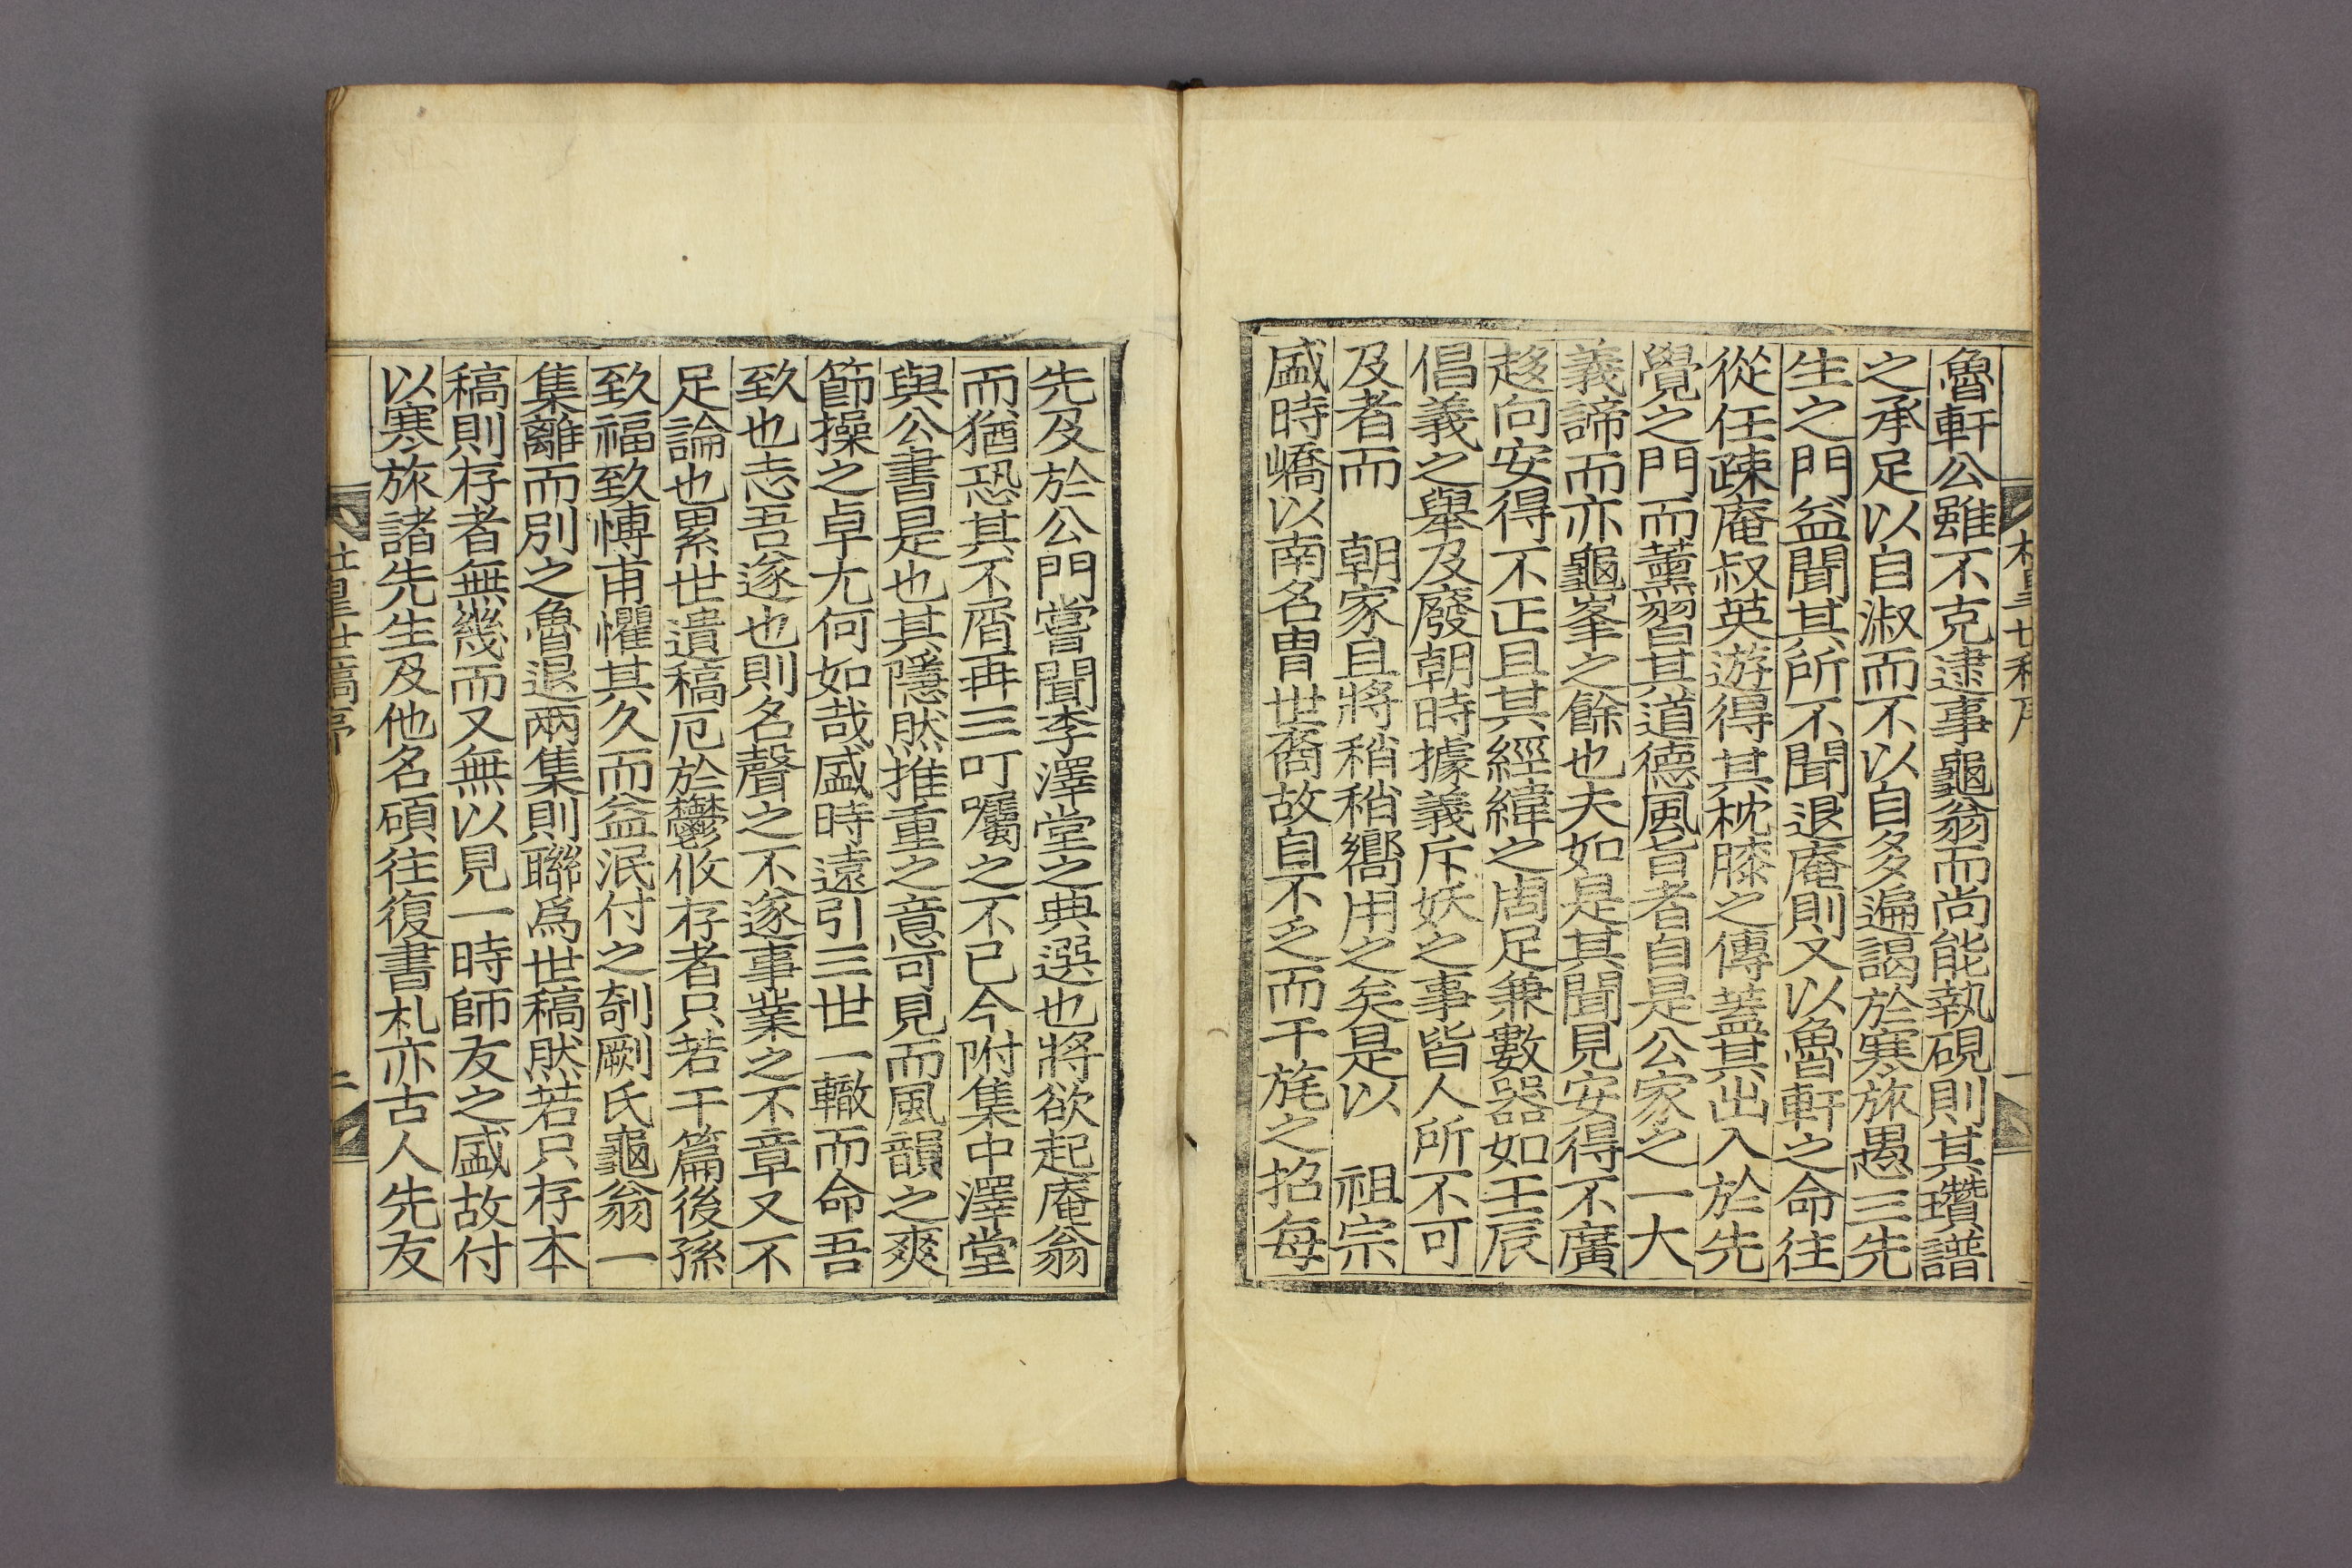 魯軒公雖不克逮事龜翁而尚能執硯則其瓚譜
之承足以自淑而不以自多遍謁於寒旅愚三先
生之門益聞其所不聞退庵則又以魯軒之命往
從任疎庵叔英遊得其枕膝之傳蓋其出入於先
覺之門而薰習其道德風旨者自是公家之一大
義諦而亦龜峯之餘也夫如是其聞見安得不廣
趍向安得不正且其經緯之周足兼數器如壬辰
倡義之舉及廢朝時據義斥妖之事皆人所不可
及者而 朝家且將稍稍嚮用之矣是以 祖宗
盛時嶠以南名冑世裔故自不乏而干旄之招每
先及於公門嘗聞李澤堂之典選也將欲起庵翁
而猶恐其不屑再三叮囑之不已今附集中澤堂
與公書是也其隱然推重之意可見而風韻之爽
節操之卓尤何如哉盛時遠引三世一轍而命吾
致也志吾遂也則名聲之不遂事業之不章又不
足論也累世遺稿厄於鬱攸存者只若干篇後孫
致福致博甫懼其久而益泯付之剞劂氏龜翁一
集離而別之魯退兩集則聯爲世稿然若只存本
稿則存者無幾而又無以見一時師友之盛故付
以寒旅諸先生及他名碩往復書札亦古人先友
世稿序
二